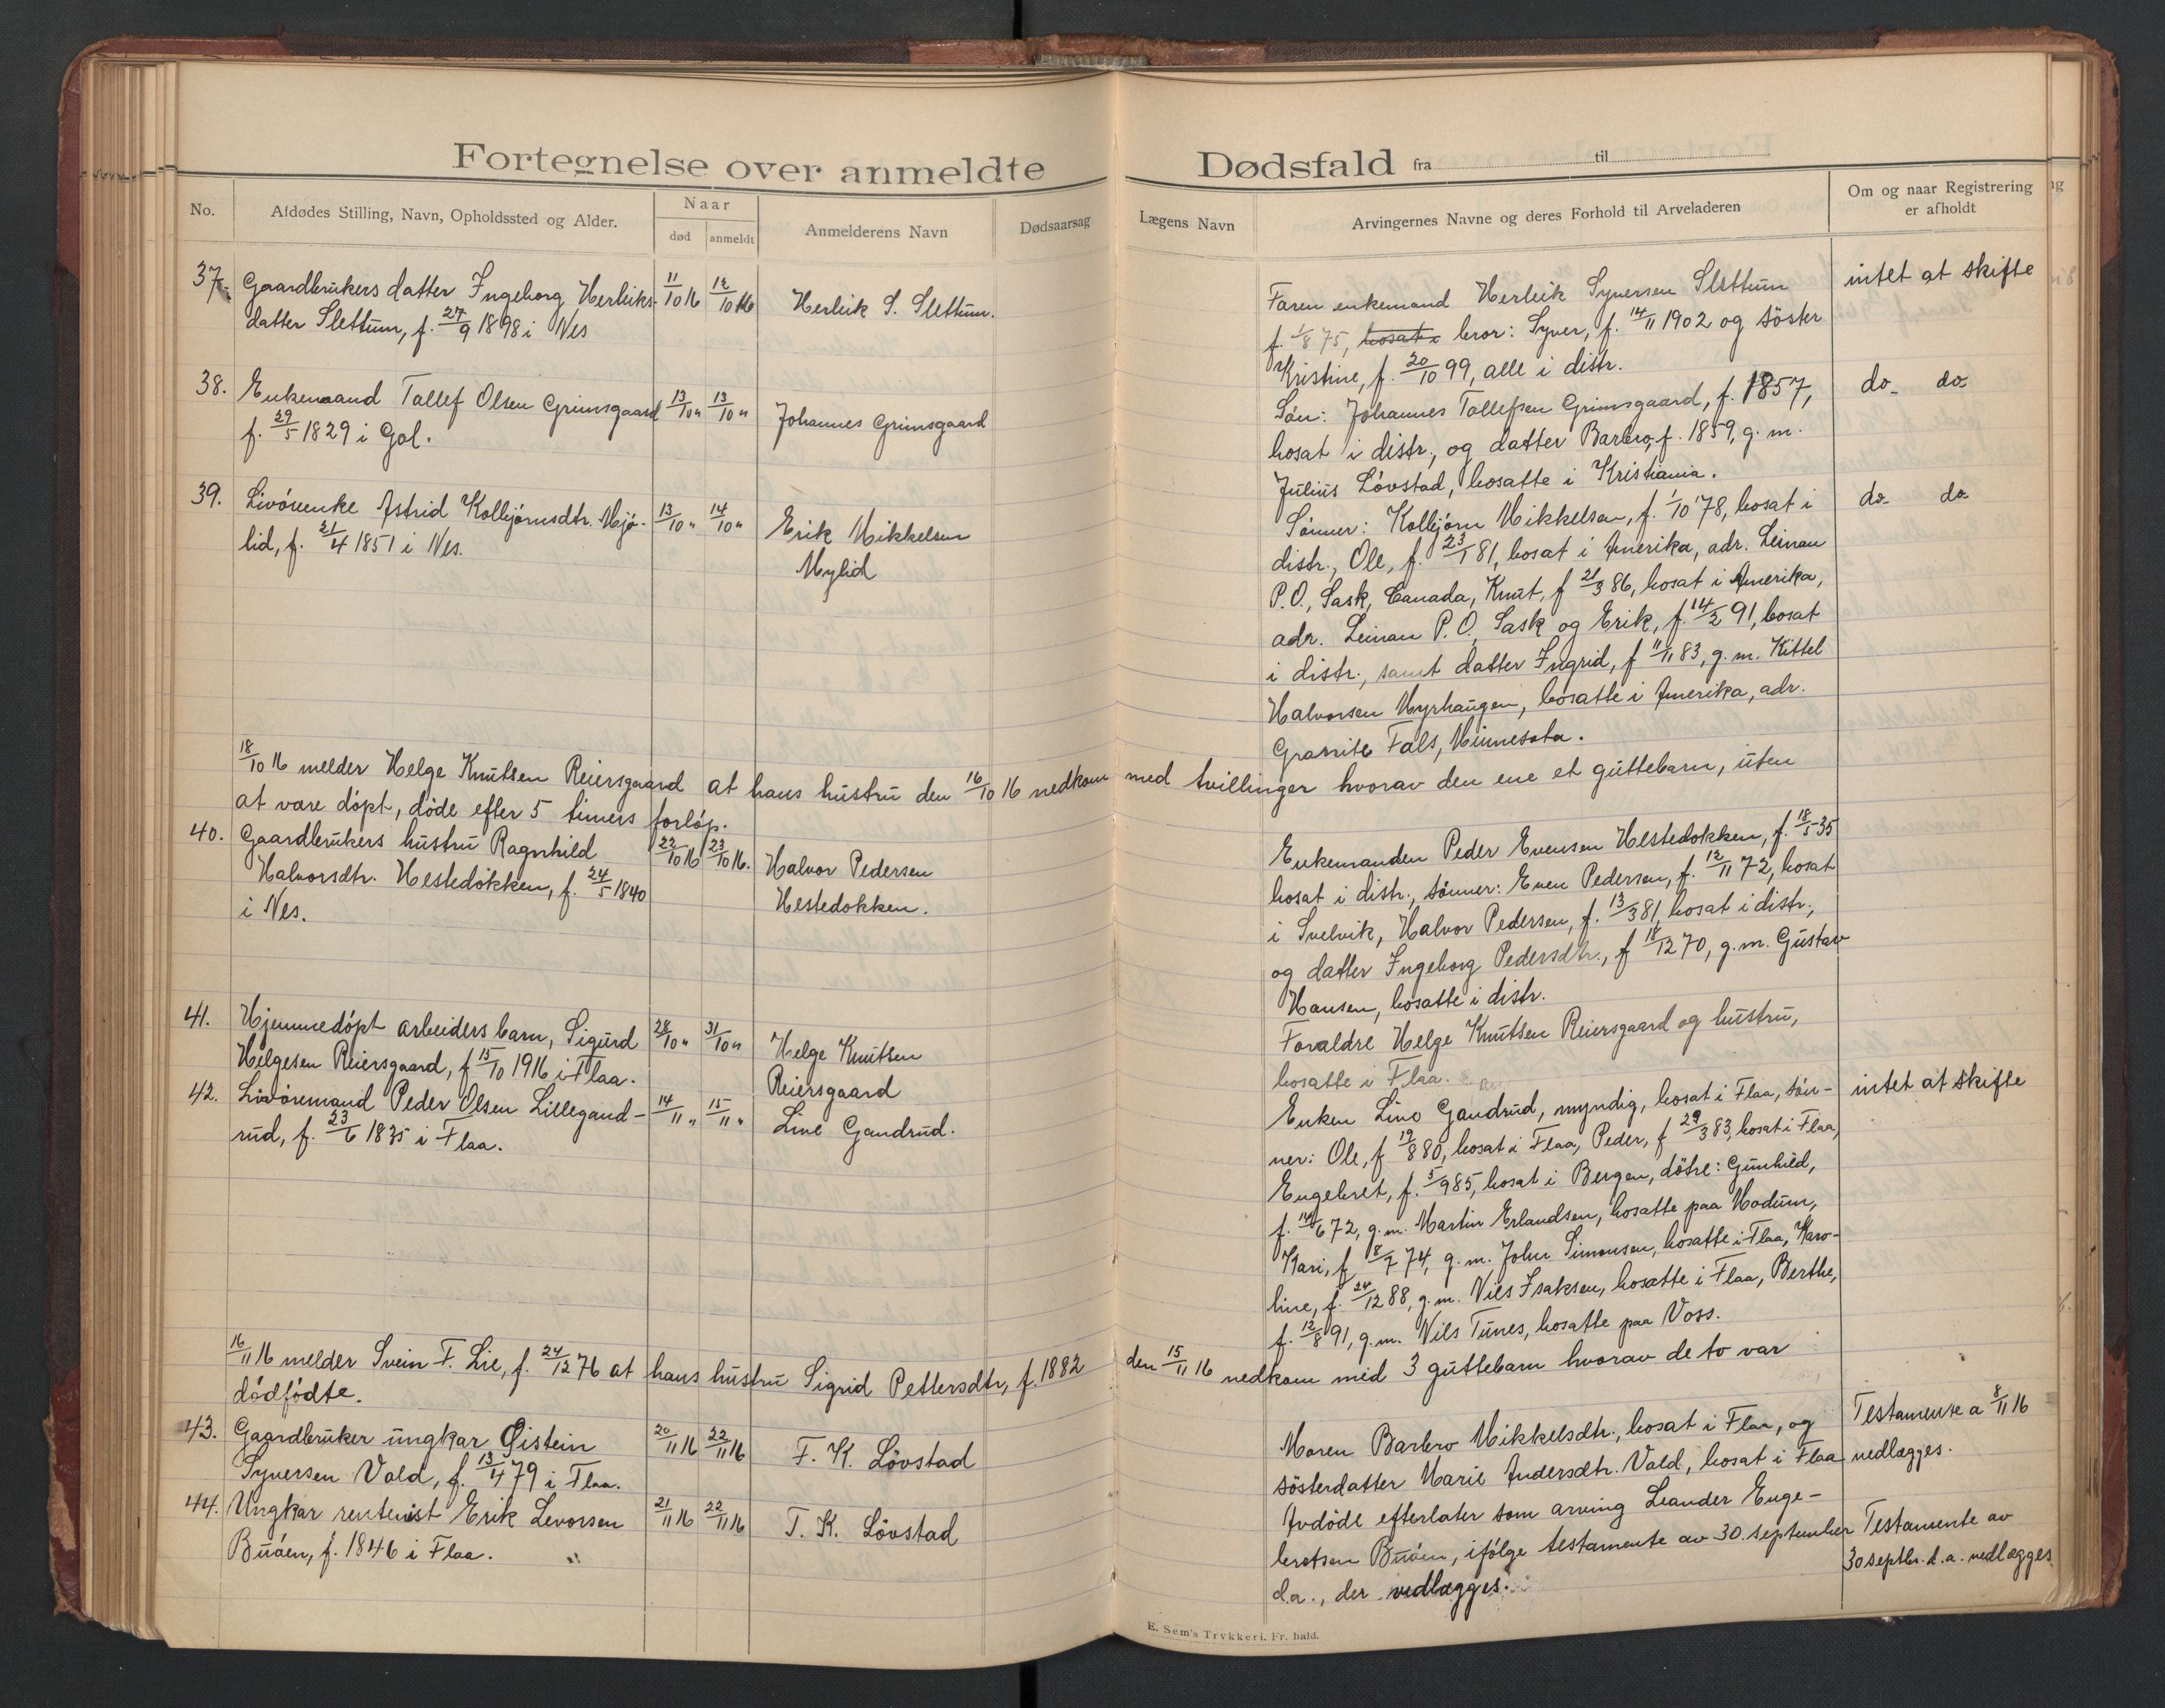 Fortegnelse over anmeldte Dødsfald fra til
No. Afdødes Stilling, Navn, Opholdssted og Alder. Naar død anmeldt Anmelderens Navn Dødsaarsag Lægens Navn Arvingernes Navne og deres Forhold til Arveladeren Om og naar Registrering er afholdt
37. Gaardbrukers datter Ingeborg Herleiks-
datter Slettum, f. 27/9 1898 i Nes
11/10 16 12/10 16
Herleik S. Slettum.
Faren enkemand Herleik Syversen Slettum
f. 1/8 75, bosat i bror: Syver, f. 14/11 1902 og söster
Kristine, f. 20/10 99, alle i distr.
intet at skifte
38. Enkemand Tollef Olsen Grimsgaard
f. 29/5 1829 i Gol.
13/10 " 13/10 "
Johannes Grimsgaard
Sön: Johannes Tollefsen Grimsgaard, f. 1857,
bosat i distr., og datter Barbro, f. 1859, g. m.
Julius Lövstad, bosatte i Kristiania.
do do
39. Livörenke Astrid Kolbjörnsdtr. Mjö-
lid, f. 21/4 1851 i Nes.
13/10 " 14/10 "
Erik Mikkelsen
Mylid
Sönner: Kolbjörn Mikkelsen, f. 1/10 '78, bosat i
distr., Ole, f. 23/1 81, bosat i Amerika, adr. Leinan
P.O., Sask, Canada, Knut, f 21/3 86, bosat i Amerika,
adr. Leinan P.O. Sask og Erik, f. 14/2 91, bosat
i distr., samt datter Ingrid, f 11/11 83, g. m. Kittel
Halvorsen Myrhaugen, bosatte i Amerika, adr.
Granite Fals, Minnesota.
do do
18/10 16 melder Helge Knutsen Reiersgaard at hans hustru den 16/10 16 nedkom med tvillinger hvorav den ene et guttebarn, uten
at være döpt, döde efter 5 timers forlöp.
40. Gaardbrukers hustru Ragnhild
Halvorsdtr. Hestedokken, f. 24/5 1840
i Nes.
22/10 16 23/10 16.
Halvor Pedersen
Hestedokken.
Enkemanden Peder Evensen Hestedokken, f. 18/5 35
bosat i distr., sönner: Even Pedersen, f. 12/11 72, bosat
i Svelvik, Halvor Pedersen, f. 13/3 81, bosat i distr.,
og datter Ingeborg Pedersdtr., f 18/12 70, g. m. Gustav
Hansen, bosatte i distr.
41. Hjemmedöpt arbeiders barn, Sigurd
Helgesen Reiersgaard, f 15/10 1916 i Flaa.
28/10 " 31/10 "
Helge Knutsen
Reiersgaard
Foraldre Helge Knutsen Reiersgaard og hustru,
bosatte i Flaa.
42. Livöremand Peder Olsen Lillegand-
rud, f. 23/6 1835 i Flaa.
14/11 " 15/11 "
Line Gandrud.
Enken Line Gandrud, myndig, bosat i Flaa, sön-
ner: Ole, f 19/8 80, bosat i Flaa, Peder, f 29/3 83, bosat i Flaa,
Engebret, f. 5/9 85, bosat i Bergen, dötre: Gunhild,
f. 14/6 72, g. m. Martin Erlandsen, bosatte paa Modum,
Kari, f 8/7 74, g. m. John Simensen, bosatte i Flaa, Karo-
line, f. 24/12 88, g. m. Nils Isaksen, bosatte i Flaa, Berthe,
f. 12/8 91, g. m. Nils Tunes, bosatte paa Voss.
intet at skifte
16/11 16 melder Svein F. Lie, f. 24/12 76 at hans hustru Sigrid Pettersdtr, f. 1882 den 15/11 16 nedkom med 3 guttebarn hvorav de to var
dödfödte.
43. Gaardbruker ungkar Öistein
Syversen Vold, f. 13/4 79 i Flaa.
20/11 16 22/11 16
T. K. Lövstad
Moren Barbro Mikkelsdtr., bosat i Flaa, og
sösterdatter Marie Andersdtr. Vold, bosat i Flaa
Testamente a 8/11 16
vedlægges.
44. Ungkar rentenist Erik Levorsen
Buöen, f. 1846 i Flaa.
21/11 16 22/11 16
T. K. Lövstad
Avdöde efterlater som arving Leander Enge-
bretsen Buöen, ifölge testamente av 30. september
d.a., der vedlægges.
Testamente av
30 septbr. d.a. vedlægges
E. Sem's Trykkeri, Fr. hald.